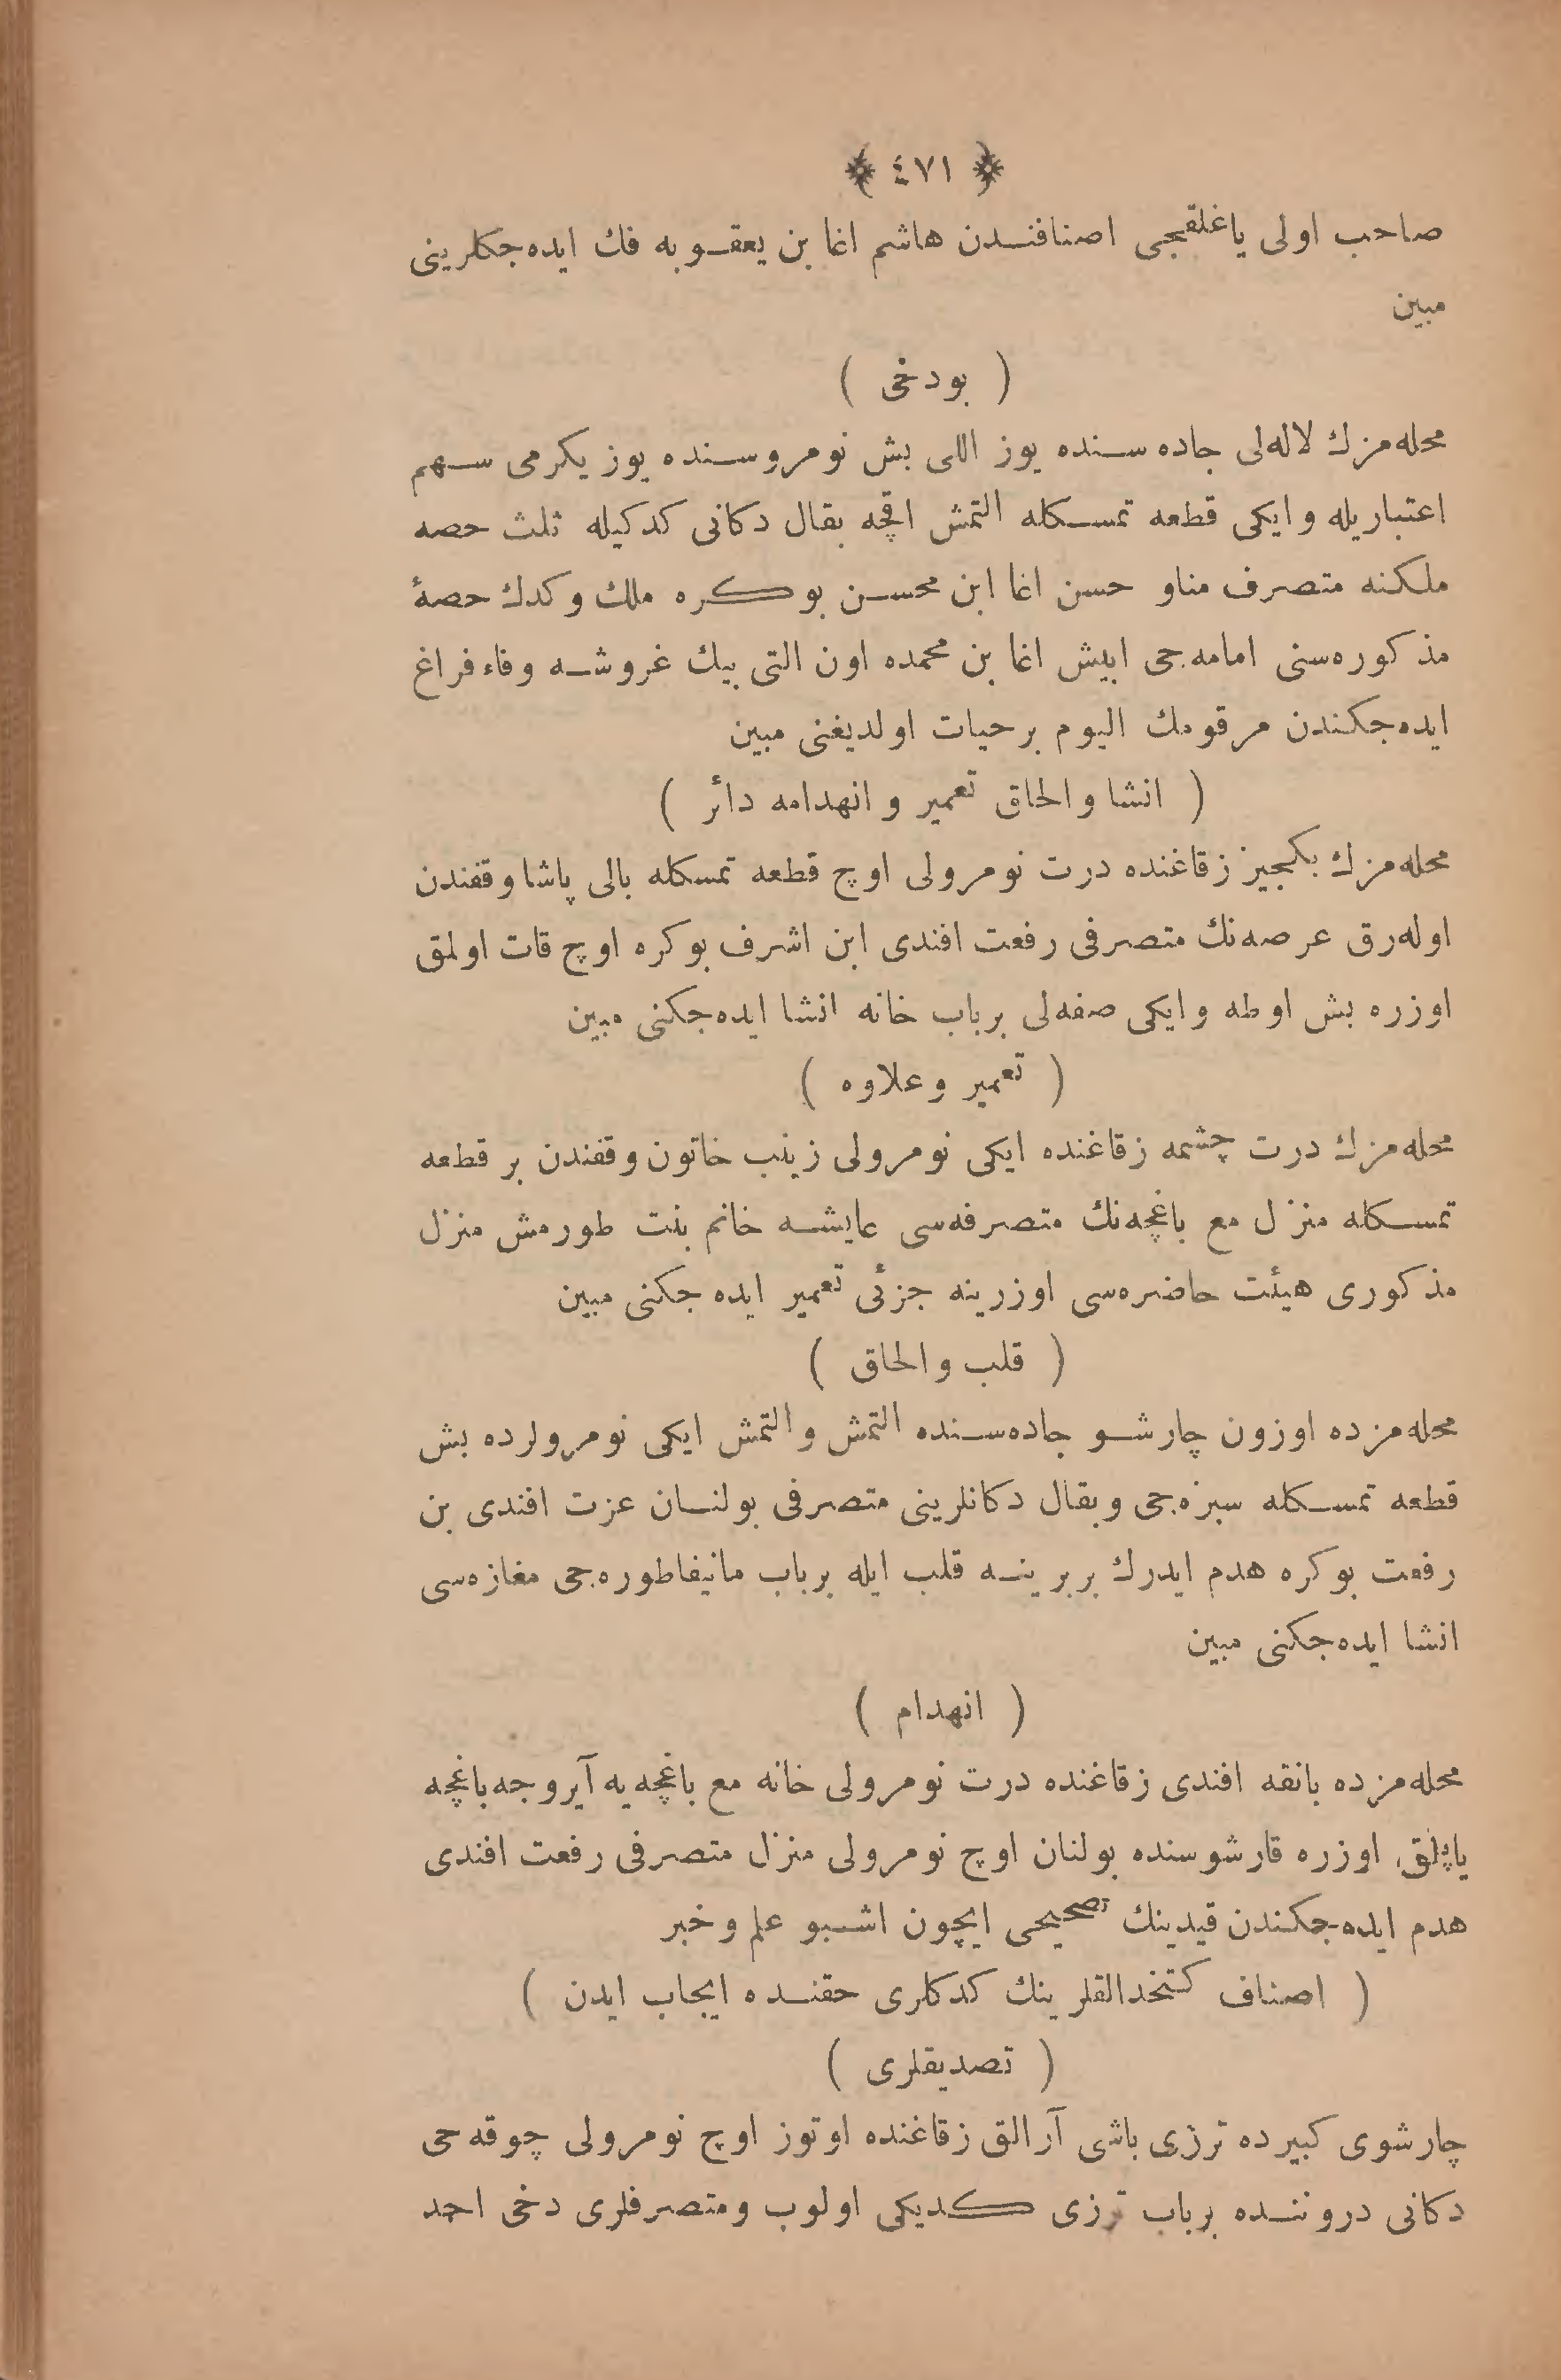 ﴿ ٤٧١ ﴾
صاحب اولی یاغلقجی اصنافندن هاشم اغا بن یعقوبه فك ایده‌جکلرینی
مبین
( بودخی )
محله‌مزك لاله‌لی جاده سنده یوز اللی بش نومروسنده یوز یکرمی سهم
اعتباریله وایکی قطعه تمسکله التمش اقچه بقال دکانی کدکیله ثلث حصه
ملکنه متصرف مناو حسن اغا ابن محسن بوکره ملك وکدك حصۀ
مذکوره‌سنی امامه‌جی ابیش اغا بن محمده اون التی بیك غروشه وفاء فراغ
ایده‌جکندن مرقومك الیوم برحیات اولدیغنی مبین
( انشا والحاق تعمیر و انهدامه دائر )
محله‌مزك بکجیز زقاغنده درت نومرولی اوچ قطعه تمسکله بالی پاشا وقفندن
اوله‌رق عرصه‌نك متصرفی رفعت افندی ابن اشرف بوکره اوچ قات اولمق
اوزره بش اوطه وایکی صفه‌لی برباب خانه انشا ایده‌جکنی مبین
( تعمیر وعلاوه )
محله‌مزك درت چشمه زقاغنده ایکی نومرولی زینب خاتون وقفندن بر قطعه
تمسکله منزل مع باغچه‌نك متصرفه‌سی عایشه خانم بنت طورمش منزل
مذکوری هیئت حاضره‌سی اوزرینه جزئی تعمیر ایده جکنی مبین
( قلب والحاق )
محله‌مزده اوزون چارشو جاده‌سنده التمش والتمش ایکی نومرولرده بش
قطعه تمسکله سبزه‌جی وبقال دکانلرینی متصرفی بولنان عزت افندی بن
رفعت بوکره هدم ایدرك بربرینه قلب ایله برباب مانیفاطوره‌جی مغازه‌سی
انشا ایده‌جکنی مبین
( انهدام )
محله‌مزده بانقه افندی زقاغنده درت نومرولی خانه مع باغچه‌یه آیروجه باغچه
یاپلق اوزره قارشوسنده بولنان اوچ نومرولی منزل متصرفی رفعت افندی
هدم ایده‌جکندن قیدینك تصحیحی ایچون اشبو علم وخبر
( اصناف کتخدالقلرینك کدکلری حقنده ایجاب ایدن )
( تصدیقلری )
چارشوی کبیرده ترزی باشی آرالق زقاغنده اوتوز اوچ نومرولی چوقه‌جی
دکانی دروننده برباب ترزی کدیکی اولوب ومتصرفلری دخی احمد